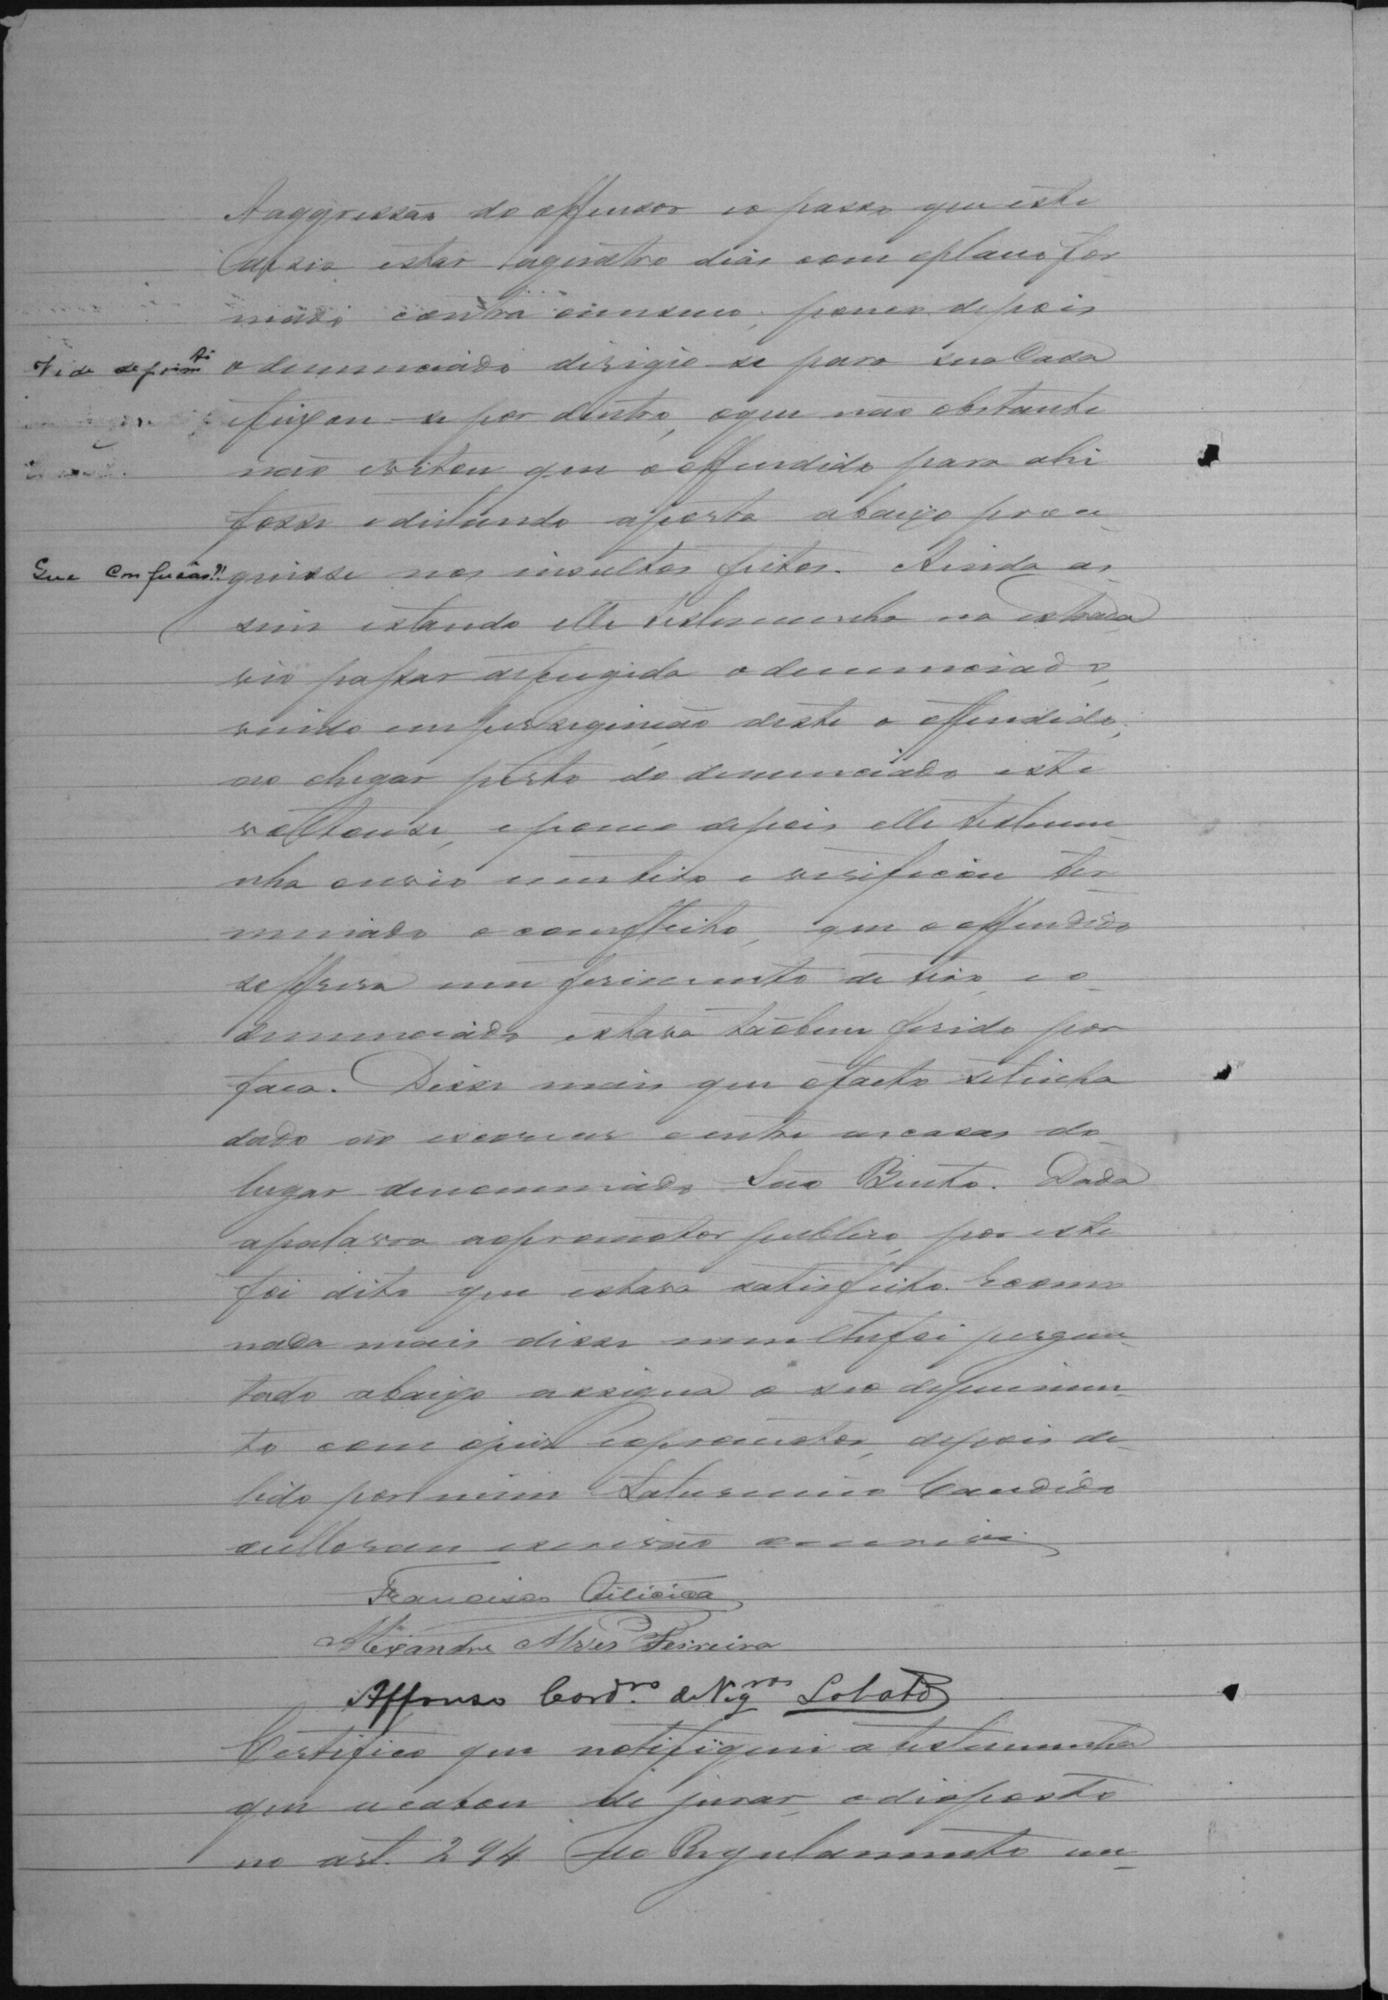 Aaggressão do offensor eo passo que este
estar aquatro dias com oplano for
mado contra pouco depois
Vide depoimto
o denunciado dirigio-se para sua Casa
efixou-se por dentro, oque não obstante
não evitou que o offendido para ahi
fosse editando aporta abaixo prose-
Que Confusão?!
guisse nos insultos feitos. Ainda as
sim estando elle testemunha na estrada
vio passar defugida o denunciado,
vindo emperseguição deste o offendido;
ao chegar perto do denunciado este
voltouse, epouco depois elle testemu-
nha ouvio um tiro e verificou ter-
minado o conflicto, que o offendido
soffrera um ferimento de tiro, e o
denunciado estava tãobem ferido por
faca. Disse mais que ofacto setinha
dado ao escurecer e entre as casas do
lugar denominado São Bento. Dada
apalavra aopromotor publico, por este
foi dito que estava satisfeito. Ecomo
nada mais disse nem lhefoi pergun-
tado abaixo assigna o seo depoimen-
to com ojuiz eopromotor, depois de
lido por mim Saturnino Candido
escrivão oescrevi
Francisco
Alexandre Alves Ferreira
Affonso Cordro. de Negros Lobato
Certifico que notifiquei a testemunha
que acabou de jurar, odisposto
no art. 294 do Regulamento nu-